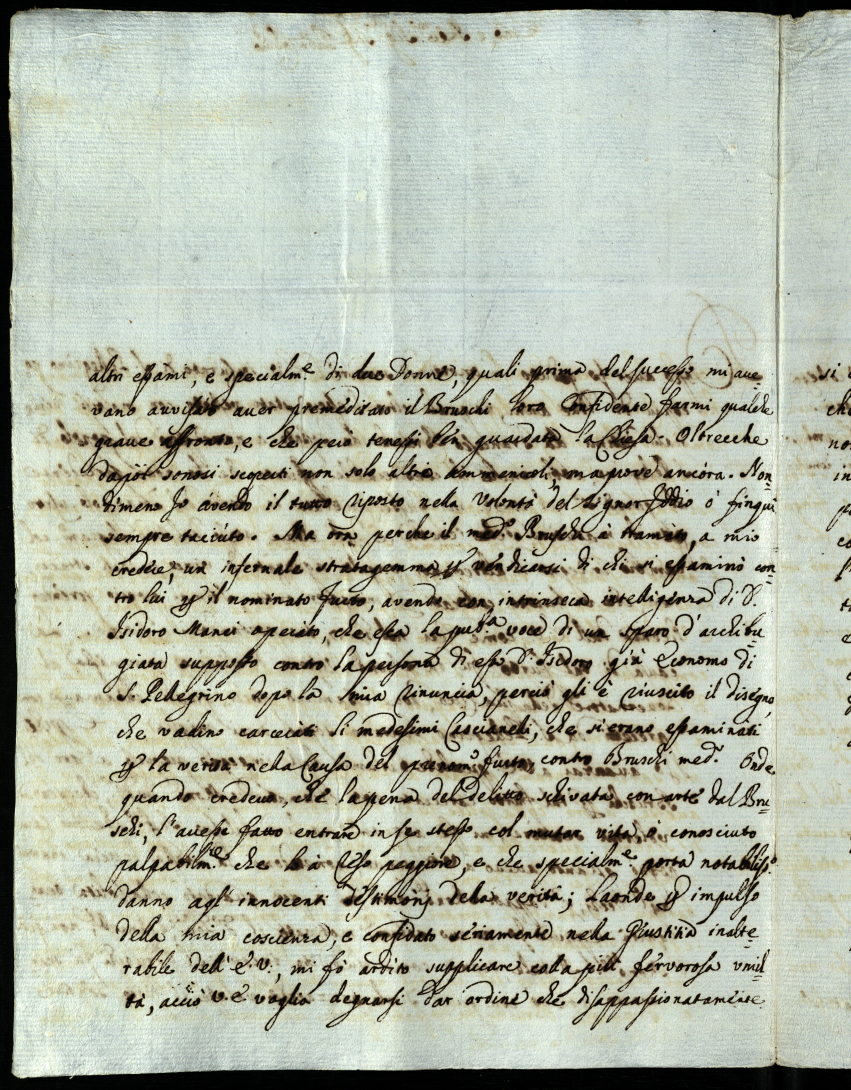 altri essami, e specialm.e di due Donne, quali prima del successo mi ave=
vano avvisato aver premeditato il Bruschi loro Confidente farmi qualche
grave affronto, e che però tenessi ben guardata la Chiesa. Oltrecche
dapoi sonosi scoperti non solo altri amminicoli, ma prove ancora. Non=
dimeno Io avendo il tutto riposto nella Volontà del Signor Iddio ò fin qui
sempre tacciuto. Ma ora perche il med.o Bruschi à tramato, a mio
credere, un infernale stratagemma p vendicarsi di chi si essaminò con=
tro lui p il nominato furto, avendo con intrinseca intelligenza di D.
Isidoro Manei operato, che esca la pub.a voce di un sparo d'archibu=
giata supposto contro la persona di esso D. Isidoro già Economo di
S. Pellegrino dopo la mia rinuncia, perciò gli è riuscito il disegno,
che vadino carcerati li medesimi Cascianelli, che si erano essaminati
p la verità nella Causa del prenom.o furto contro Bruschi med.o Onde
quando credeva, che la pena del Delitto schivata con arte dal Bru=
schi, l'avesse fatto entrare in se stesso col mutar vita, ò conosciuto
palpabilm.te che l'à reso peggiore, e che specialm.e porta notabiliss.o
danno agl'innocenti testimonj della verità; Laonde p impulso
della mia coscienza, e confidato seriamente nella Giustizia inalte=
rabile dell'E.V., mi fò ardito supplicare colla più fervorosa umil=
tà, acciò V.E. voglia degnarsi dar ordine che disappassionatamente